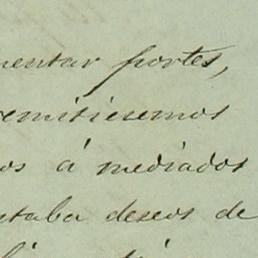 mentar portes,
remitiesemos
os á mediados
ntaba deseos de